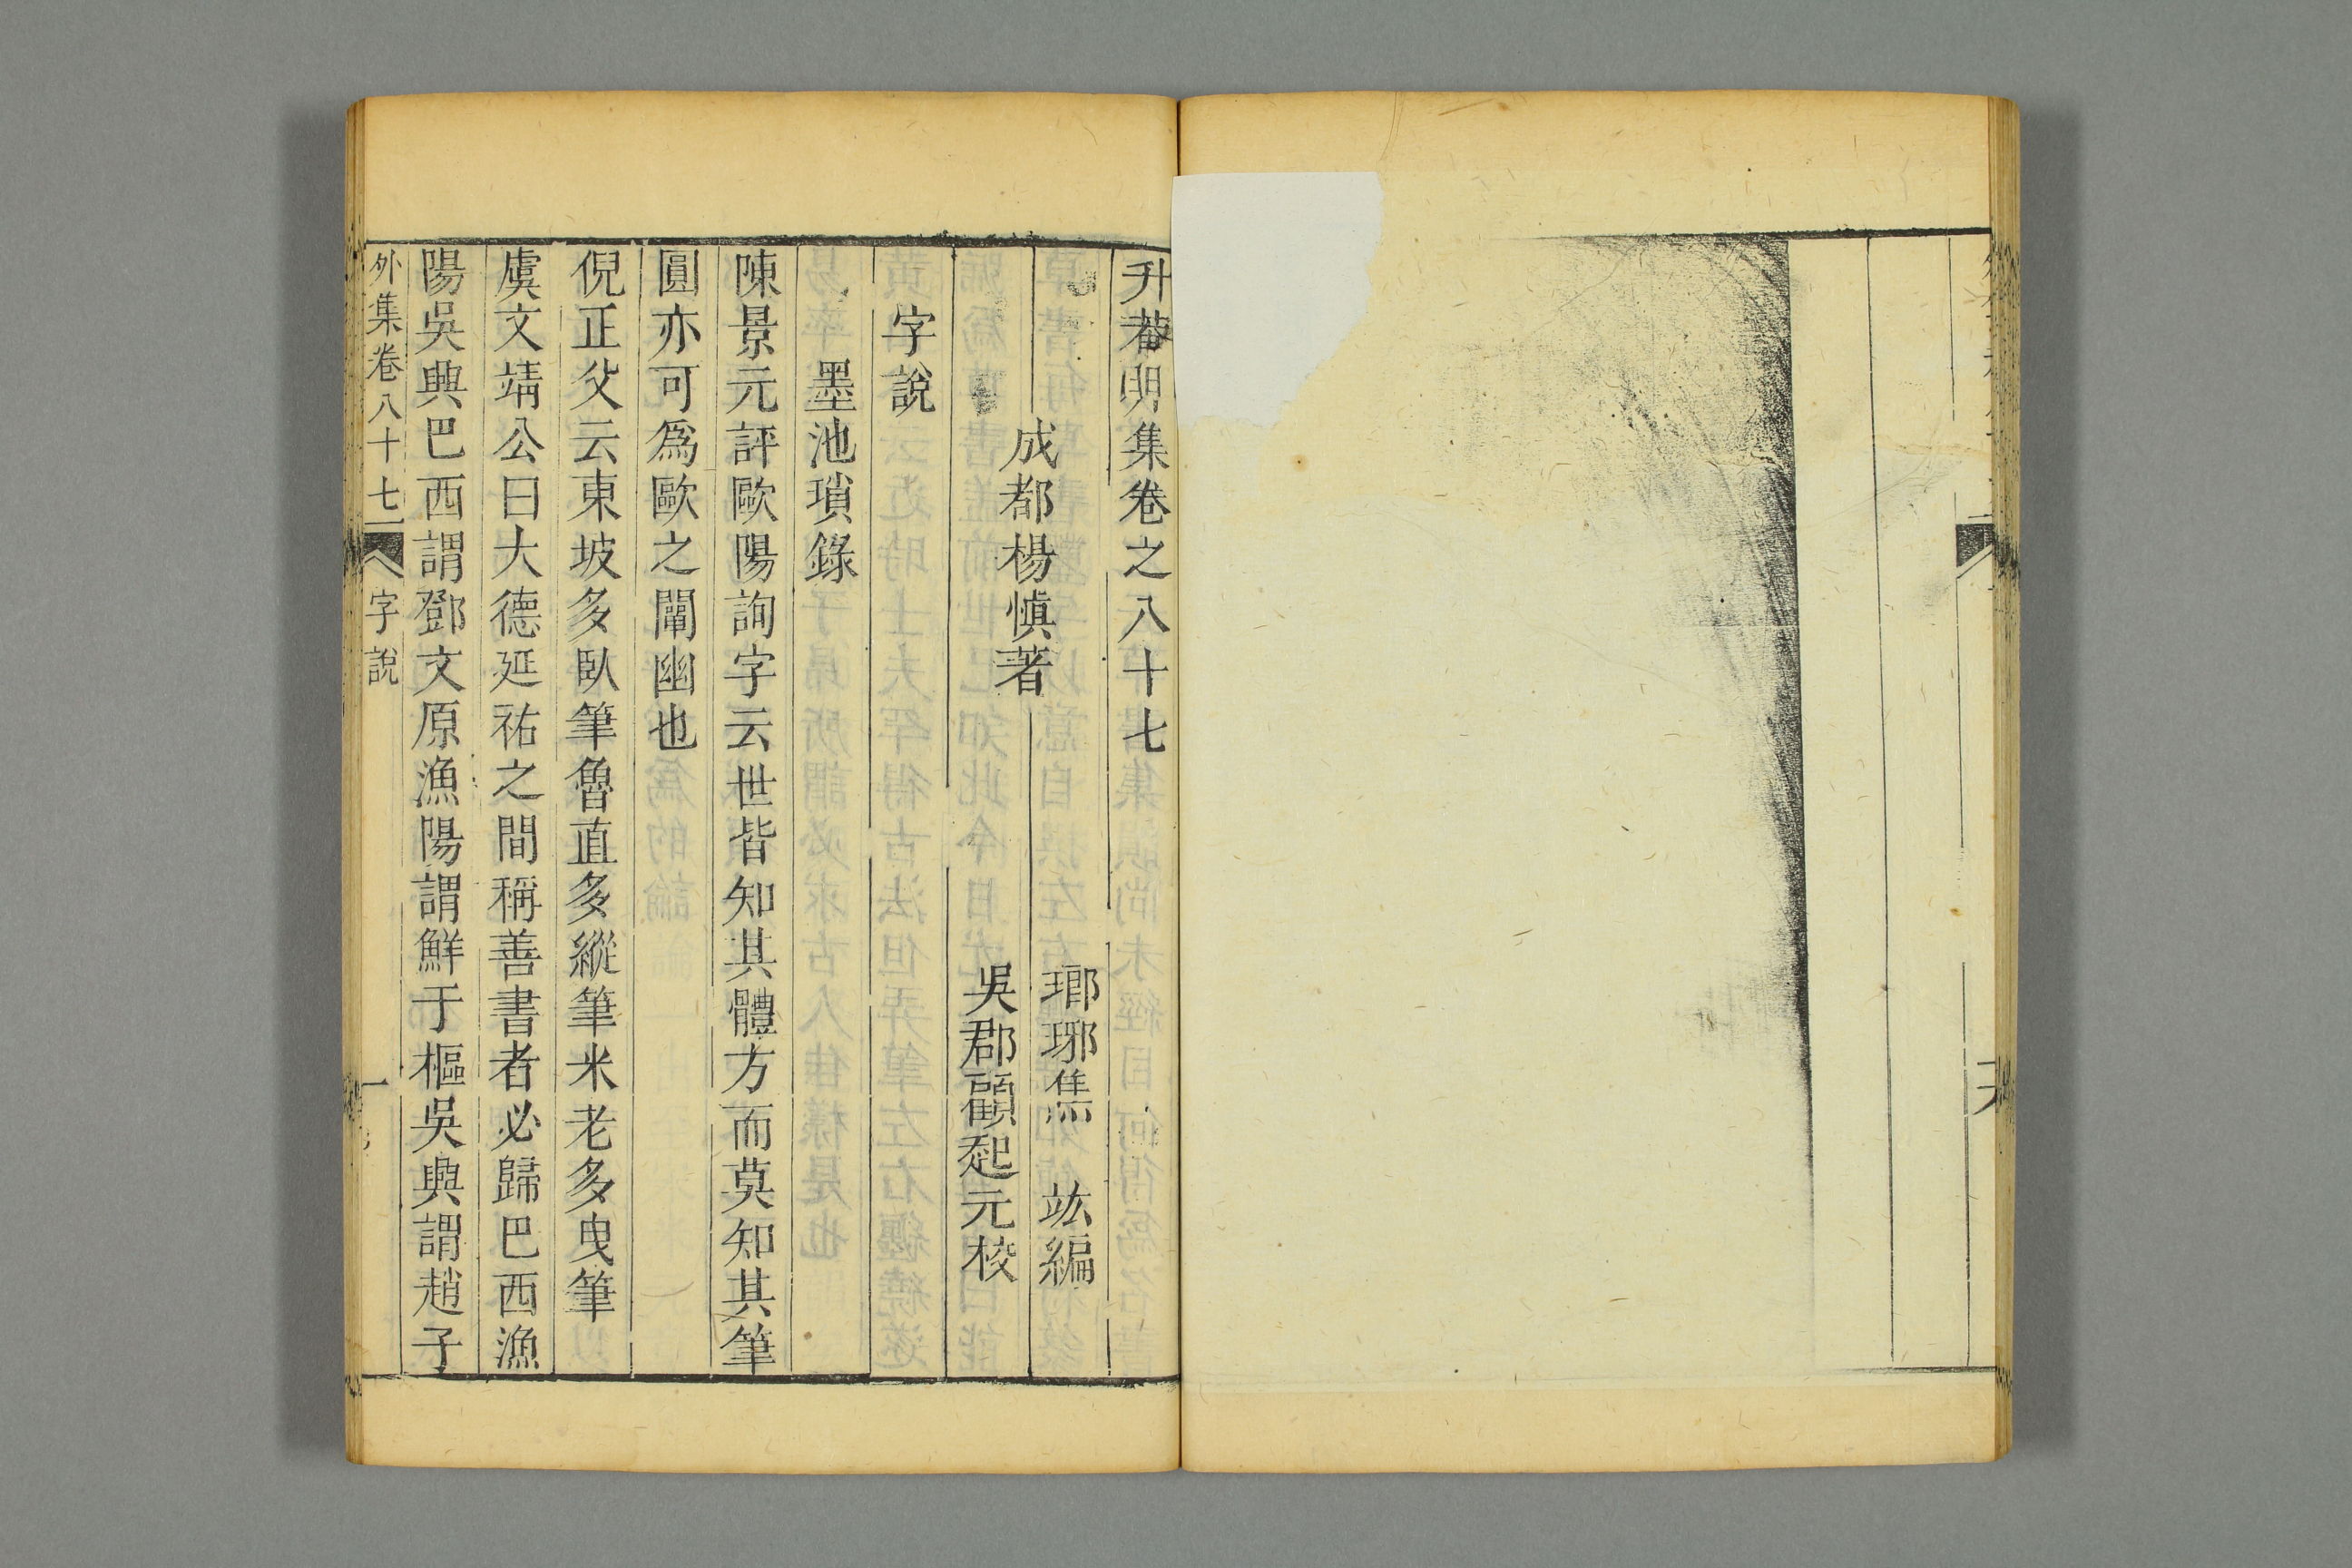 升菴明集卷之八十七
成都楊愼著
瑯琊焦 竑編
吳郡顧起元校
字說
墨池瑣錄
陳景元評歐陽詢字云世皆知其體方而莫知其筆
圓亦可爲歐之闡幽也
倪正父云東坡多臥筆魯直多縱筆米老多曳筆
虞文靖公曰大德延祐之間稱善書者必歸巴西漁
陽吳興巴西謂鄧文原漁陽謂鮮于樞吳興謂趙子
外集卷八十七 字說 一